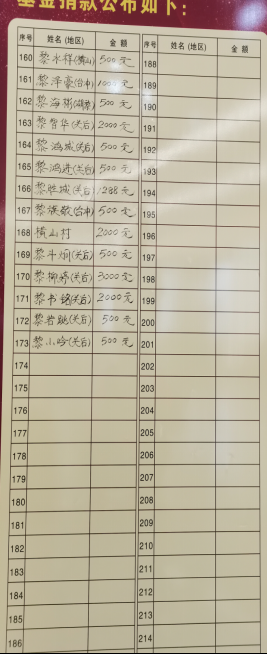 基金捐款公布如下：
序号 姓名(地区) 金额 序号 姓名(地区) 金额
160 黎水祥(横山) 500元 188
161 黎泽豪(台冲) 1000元 189
162 黎海彬 500元 190
163 黎智华(关后) 2000元 191
164 黎鸿城(关后) 500元 192
165 黎鸿进(关后) 500元 193
166 黎胜城(关后) 1288元 194
167 黎振敬(台冲) 500元 195
168 横山村 2000元 196
169 黎斗炯(关后) 500元 197
170 黎柳婷(关后) 3000元 198
171 黎书铭(关后) 2000元 199
172 黎岩跳(关后) 500元 200
173 黎小吟(关后) 500元 201
174 202
175 203
176 204
177 205
178 206
179 207
180 208
181 209
182 210
183 211
184 212
185 213
186 214